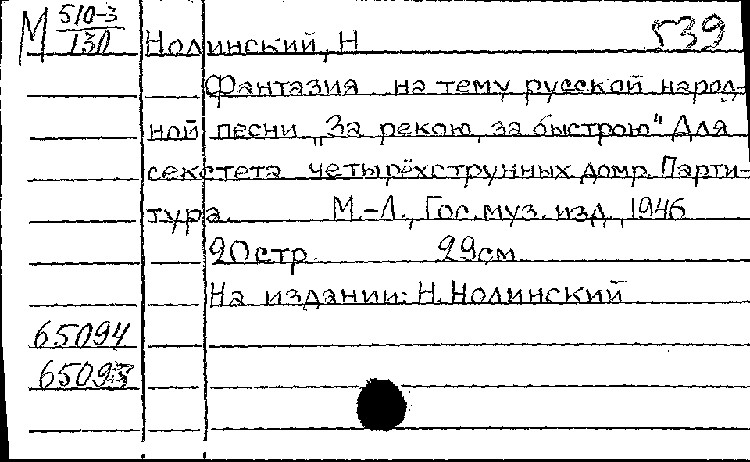 М 510-3
130
Нолинский, Н
539
Фантазия на тему русской народ-
ной песни „За рекою, за быстрою" Для
секстета четырёхструнных домр. Парти-
тура. М.-Л., Гос. муз. изд., 1946
20 стр 29 см
На издании: Н. Нолинский
65094
65093